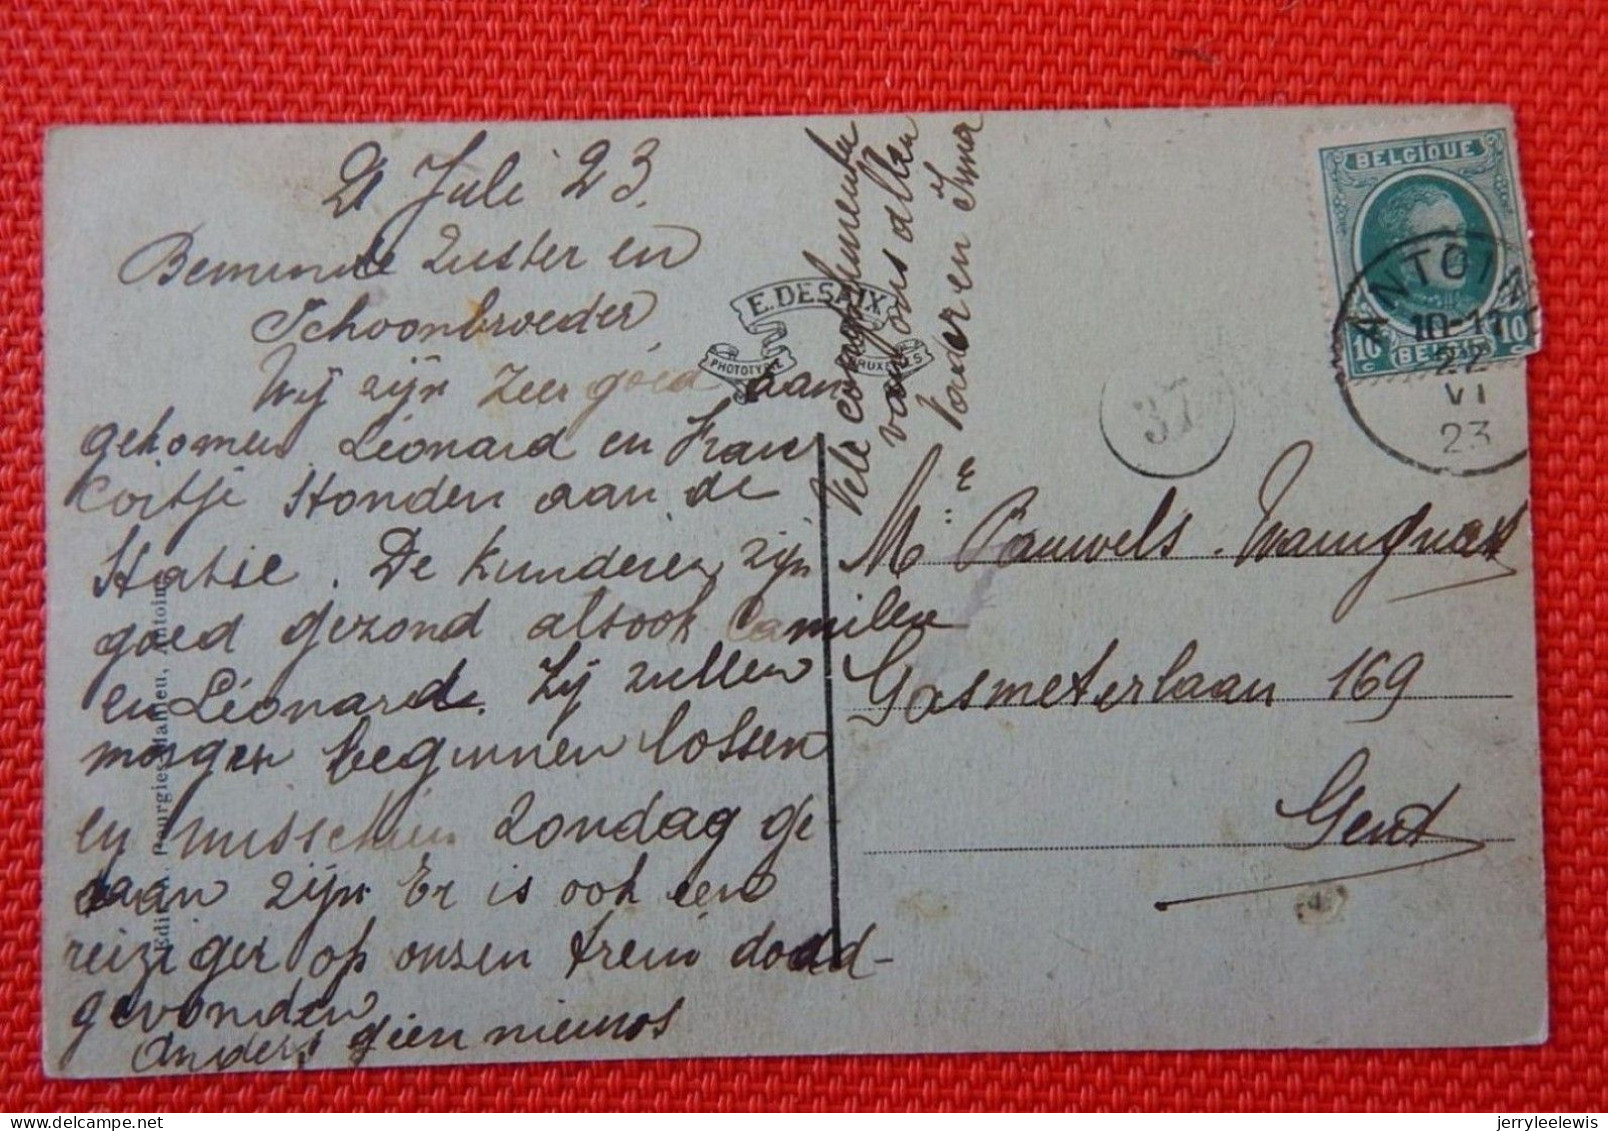 21 Juli 23.
Beminde Zuster en
Schoonbroeder
Wij zijn zeer goed aan
gekomen Léonard en Fran
coitje stonden aan de
statie. De kinderen zijn
goed gezond alsook Camilen
en Léonard. Zij zullen
morgen beginnen lossen
en misschien Zondag ge-
daan zijn Er is ook een
reiziger op onzen trein dood-
gevonden
Anders gien nieuws
Vele complimenten
van ons allen
Vader en Irma
E. DESAIX
PHOTOTYPIE
BRUXELLES
Antoing
BELGIQUE
10 10
BELGIË
ANTOING
10-11
22
VI
23
37
Me Pauwels
Gasmeterlaan 169
Gent
jerryleelewis